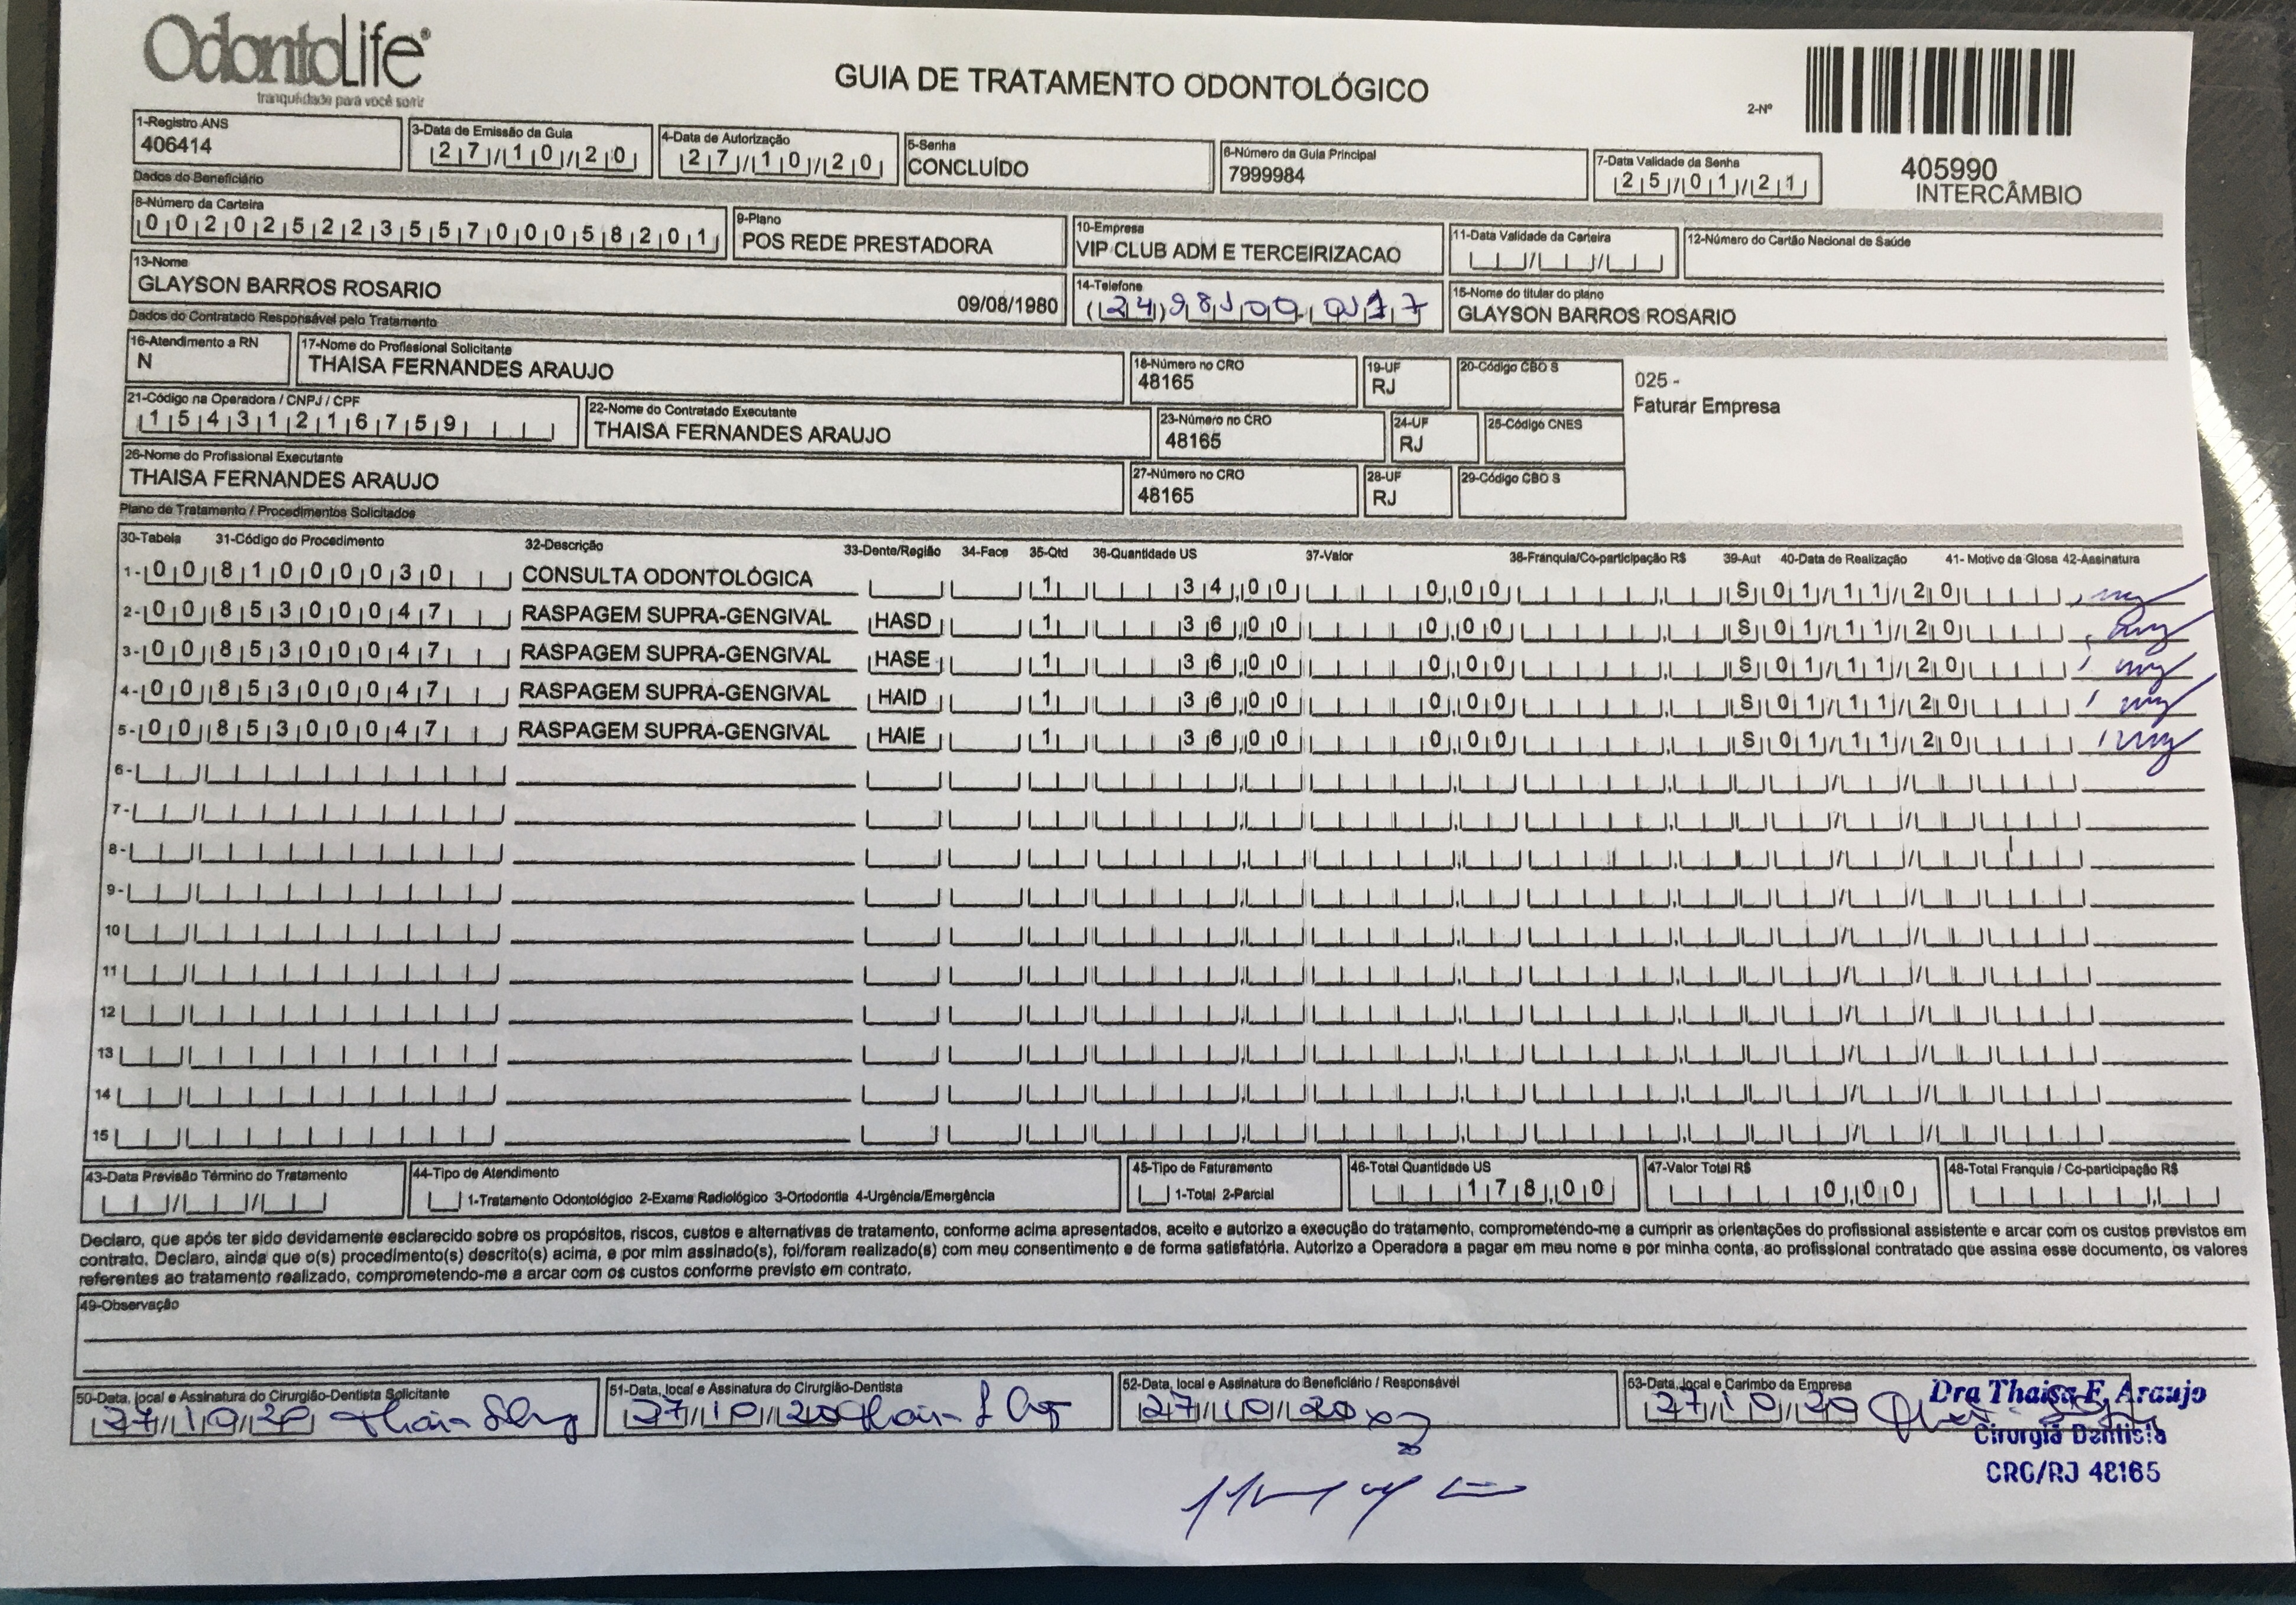 OdontoLife®
tranquilidade para você sorrir
GUIA DE TRATAMENTO ODONTOLÓGICO
2-Nº
405990
INTERCÂMBIO
1-Registro ANS
406414
3-Data de Emissão da Guia
27/10/20
4-Data de Autorização
27/10/20
5-Senha
CONCLUÍDO
6-Número da Guia Principal
7999984
7-Data Validade da Senha
25/01/21
Dados do Beneficiário
8-Número da Carteira
00202522355700058201
9-Plano
POS REDE PRESTADORA
10-Empresa
VIP CLUB ADM E TERCEIRIZACAO
11-Data Validade da Carteira
12-Número do Cartão Nacional de Saúde
13-Nome
GLAYSON BARROS ROSARIO 09/08/1980
14-Telefone
15-Nome do titular do plano
GLAYSON BARROS ROSARIO
Dados do Contratado Responsável pelo Tratamento
16-Atendimento a RN
N
17-Nome do Profissional Solicitante
THAISA FERNANDES ARAUJO
18-Número no CRO
48165
19-UF
RJ
20-Código CBO S
025 -
Faturar Empresa
21-Código na Operadora / CNPJ / CPF
15431216759
22-Nome do Contratado Executante
THAISA FERNANDES ARAUJO
23-Número no CRO
48165
24-UF
RJ
25-Código CNES
26-Nome do Profissional Executante
THAISA FERNANDES ARAUJO
27-Número no CRO
48165
28-UF
RJ
29-Código CBO S
Plano de Tratamento / Procedimentos Solicitados
30-Tabela 31-Código do Procedimento 32-Descrição 33-Dente/Região 34-Face 35-Qtd 36-Quantidade US 37-Valor 38-Franquia/Co-participação R$ 39-Aut 40-Data de Realização 41- Motivo da Glosa 42-Assinatura
1- 00 81000030 CONSULTA ODONTOLÓGICA 1 34,00 0,00 S 01/11/20
2- 00 85300047 RASPAGEM SUPRA-GENGIVAL HASD 1 36,00 0,00 S 01/11/20
3- 00 85300047 RASPAGEM SUPRA-GENGIVAL HASE 1 36,00 0,00 S 01/11/20
4- 00 85300047 RASPAGEM SUPRA-GENGIVAL HAID 1 36,00 0,00 S 01/11/20
5- 00 85300047 RASPAGEM SUPRA-GENGIVAL HAIE 1 36,00 0,00 S 01/11/20
6-
7-
8-
9-
10
11
12
13
14
15
43-Data Previsão Término do Tratamento
44-Tipo de Atendimento
1-Tratamento Odontológico 2-Exame Radiológico 3-Ortodontia 4-Urgência/Emergência
45-Tipo de Faturamento
1-Total 2-Parcial
46-Total Quantidade US
178,00
47-Valor Total R$
0,00
48-Total Franquia / Co-participação R$
Declaro, que após ter sido devidamente esclarecido sobre os propósitos, riscos, custos e alternativas de tratamento, conforme acima apresentados, aceito e autorizo a execução do tratamento, comprometendo-me a cumprir as orientações do profissional assistente e arcar com os custos previstos em
contrato. Declaro, ainda que o(s) procedimento(s) descrito(s) acima, e por mim assinado(s), foi/foram realizado(s) com meu consentimento e de forma satisfatória. Autorizo a Operadora a pagar em meu nome e por minha conta, ao profissional contratado que assina esse documento, os valores
referentes ao tratamento realizado, comprometendo-me a arcar com os custos conforme previsto em contrato.
49-Observação
50-Data, local e Assinatura do Cirurgião-Dentista Solicitante
27/10/20
51-Data, local e Assinatura do Cirurgião-Dentista
27/10/20
52-Data, local e Assinatura do Beneficiário / Responsável
27/10/20
53-Data, local e Carimbo da Empresa
27/10/20
Dra Thaisa F. Araujo
Cirurgiã Dentista
CRO/RJ 48165